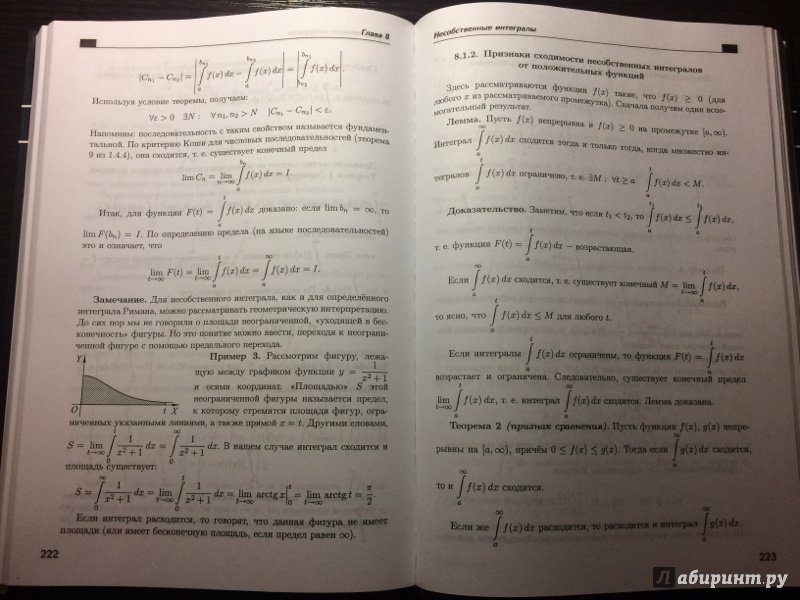 Глава 8
|C_{n_1} − C_{n_2}| = |∫_a^{b_{n_1}} f(x) dx − ∫_a^{b_{n_2}} f(x) dx| = |∫_{b_{n_2}}^{b_{n_1}} f(x) dx|.
Используя условие теоремы, получаем:
∀ε > 0 ∃N : ∀n_1, n_2 > N |C_{n_1} − C_{n_2}| < ε.
Напомним: последовательность с таким свойством называется фундамен-
тальной. По критерию Коши для числовых последовательностей (теорема
9 из 1.4.4), она сходится, т. е. существует конечный предел
lim C_n = lim_{n→∞} ∫_a^{b_n} f(x) dx = I.
Итак, для функции F(t) = ∫_a^t f(x) dx доказано: если lim b_n = ∞, то
lim F(b_n) = I. По определению предела (на языке последовательностей)
это и означает, что
lim_{t→∞} F(t) = lim_{t→∞} ∫_a^t f(x) dx = ∫_a^∞ f(x) dx = I.
Замечание. Для несобственного интеграла, как и для определённого
интеграла Римана, можно рассматривать геометрическую интерпретацию.
До сих пор мы не говорили о площади неограниченной, «уходящей в бес-
конечность» фигуры. Но это понятие можно ввести, переходя к неограни-
ченной фигуре с помощью предельного перехода.
Y
O
t X
Пример 3. Рассмотрим фигуру, лежа-
щую между графиком функции y = 1/(x² + 1)
и осями координат. «Площадью» S этой
неограниченной фигуры называется предел,
к которому стремятся площади фигур, огра-
ниченных указанными линиями, а также прямой x = t. Другими словами,
S = lim_{t→∞} ∫_0^t 1/(x² + 1) dx = ∫_0^∞ 1/(x² + 1) dx. В нашем случае интеграл сходится и
площадь существует:
S = ∫_0^∞ 1/(x² + 1) dx = lim_{t→∞} ∫_0^t 1/(x² + 1) dx = lim_{t→∞} arctg x|_0^t = lim_{t→∞} arctg t = π/2.
Если интеграл расходится, то говорят, что данная фигура не имеет
площади (или имеет бесконечную площадь, если предел равен ∞).
222
Несобственные интегралы
8.1.2. Признаки сходимости несобственных интегралов
от положительных функций
Здесь рассматриваются функции f(x) такие, что f(x) ≥ 0 (для
любого x из рассматриваемого промежутка). Сначала получим один вспо-
могательный результат.
Лемма. Пусть f(x) непрерывна и f(x) ≥ 0 на промежутке [a, ∞).
Интеграл ∫_a^∞ f(x) dx сходится тогда и только тогда, когда множество ин-
тегралов ∫_a^t f(x) dx ограничено, т. е. ∃M : ∀t ≥ a ∫_a^t f(x) dx < M.
Доказательство. Заметим, что если t_1 < t_2, то ∫_a^{t_1} f(x) dx ≤ ∫_a^{t_2} f(x) dx,
т. е. функция F(t) = ∫_a^t f(x) dx — возрастающая.
Если ∫_a^∞ f(x) dx сходится, т. е. существует конечный M = lim_{t→∞} ∫_a^t f(x) dx,
то ясно, что ∫_a^t f(x) dx ≤ M для любого t.
Если интегралы ∫_a^t f(x) dx ограничены, то функция F(t) = ∫_a^t f(x) dx
возрастает и ограничена. Следовательно, существует конечный предел
lim_{t→∞} ∫_a^t f(x) dx, т. е. интеграл ∫_a^∞ f(x) dx сходится. Лемма доказана.
Теорема 2 (признак сравнения). Пусть функции f(x), g(x) непре-
рывны на [a, ∞), причём 0 ≤ f(x) ≤ g(x). Тогда если ∫_a^∞ g(x) dx сходится,
то и ∫_a^∞ f(x) dx сходится.
Если же ∫_a^∞ f(x) dx расходится, то расходится и интеграл ∫_a^∞ g(x) dx
223
Лабиринт.ру